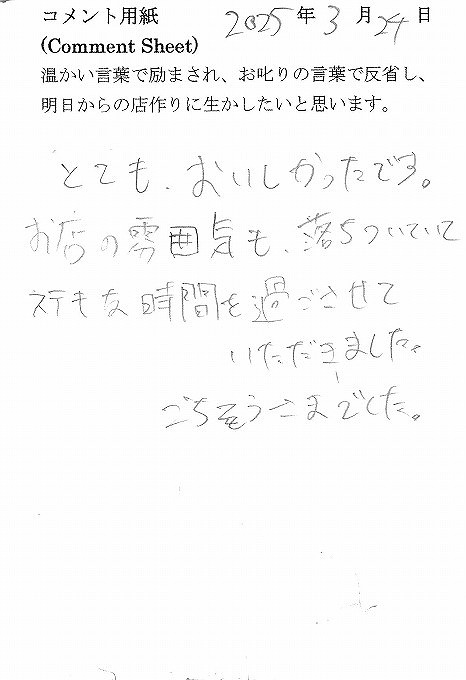 コメント用紙 2025年3月24日
(Comment Sheet)
温かい言葉で励まされ、お叱りの言葉で反省し、
明日からの店作りに生かしたいと思います。
とても、おいしかったです。
お店の雰囲気も、落ちついていて
ステキな時間を過ごさせて
いただきました。
ごちそうさまでした。